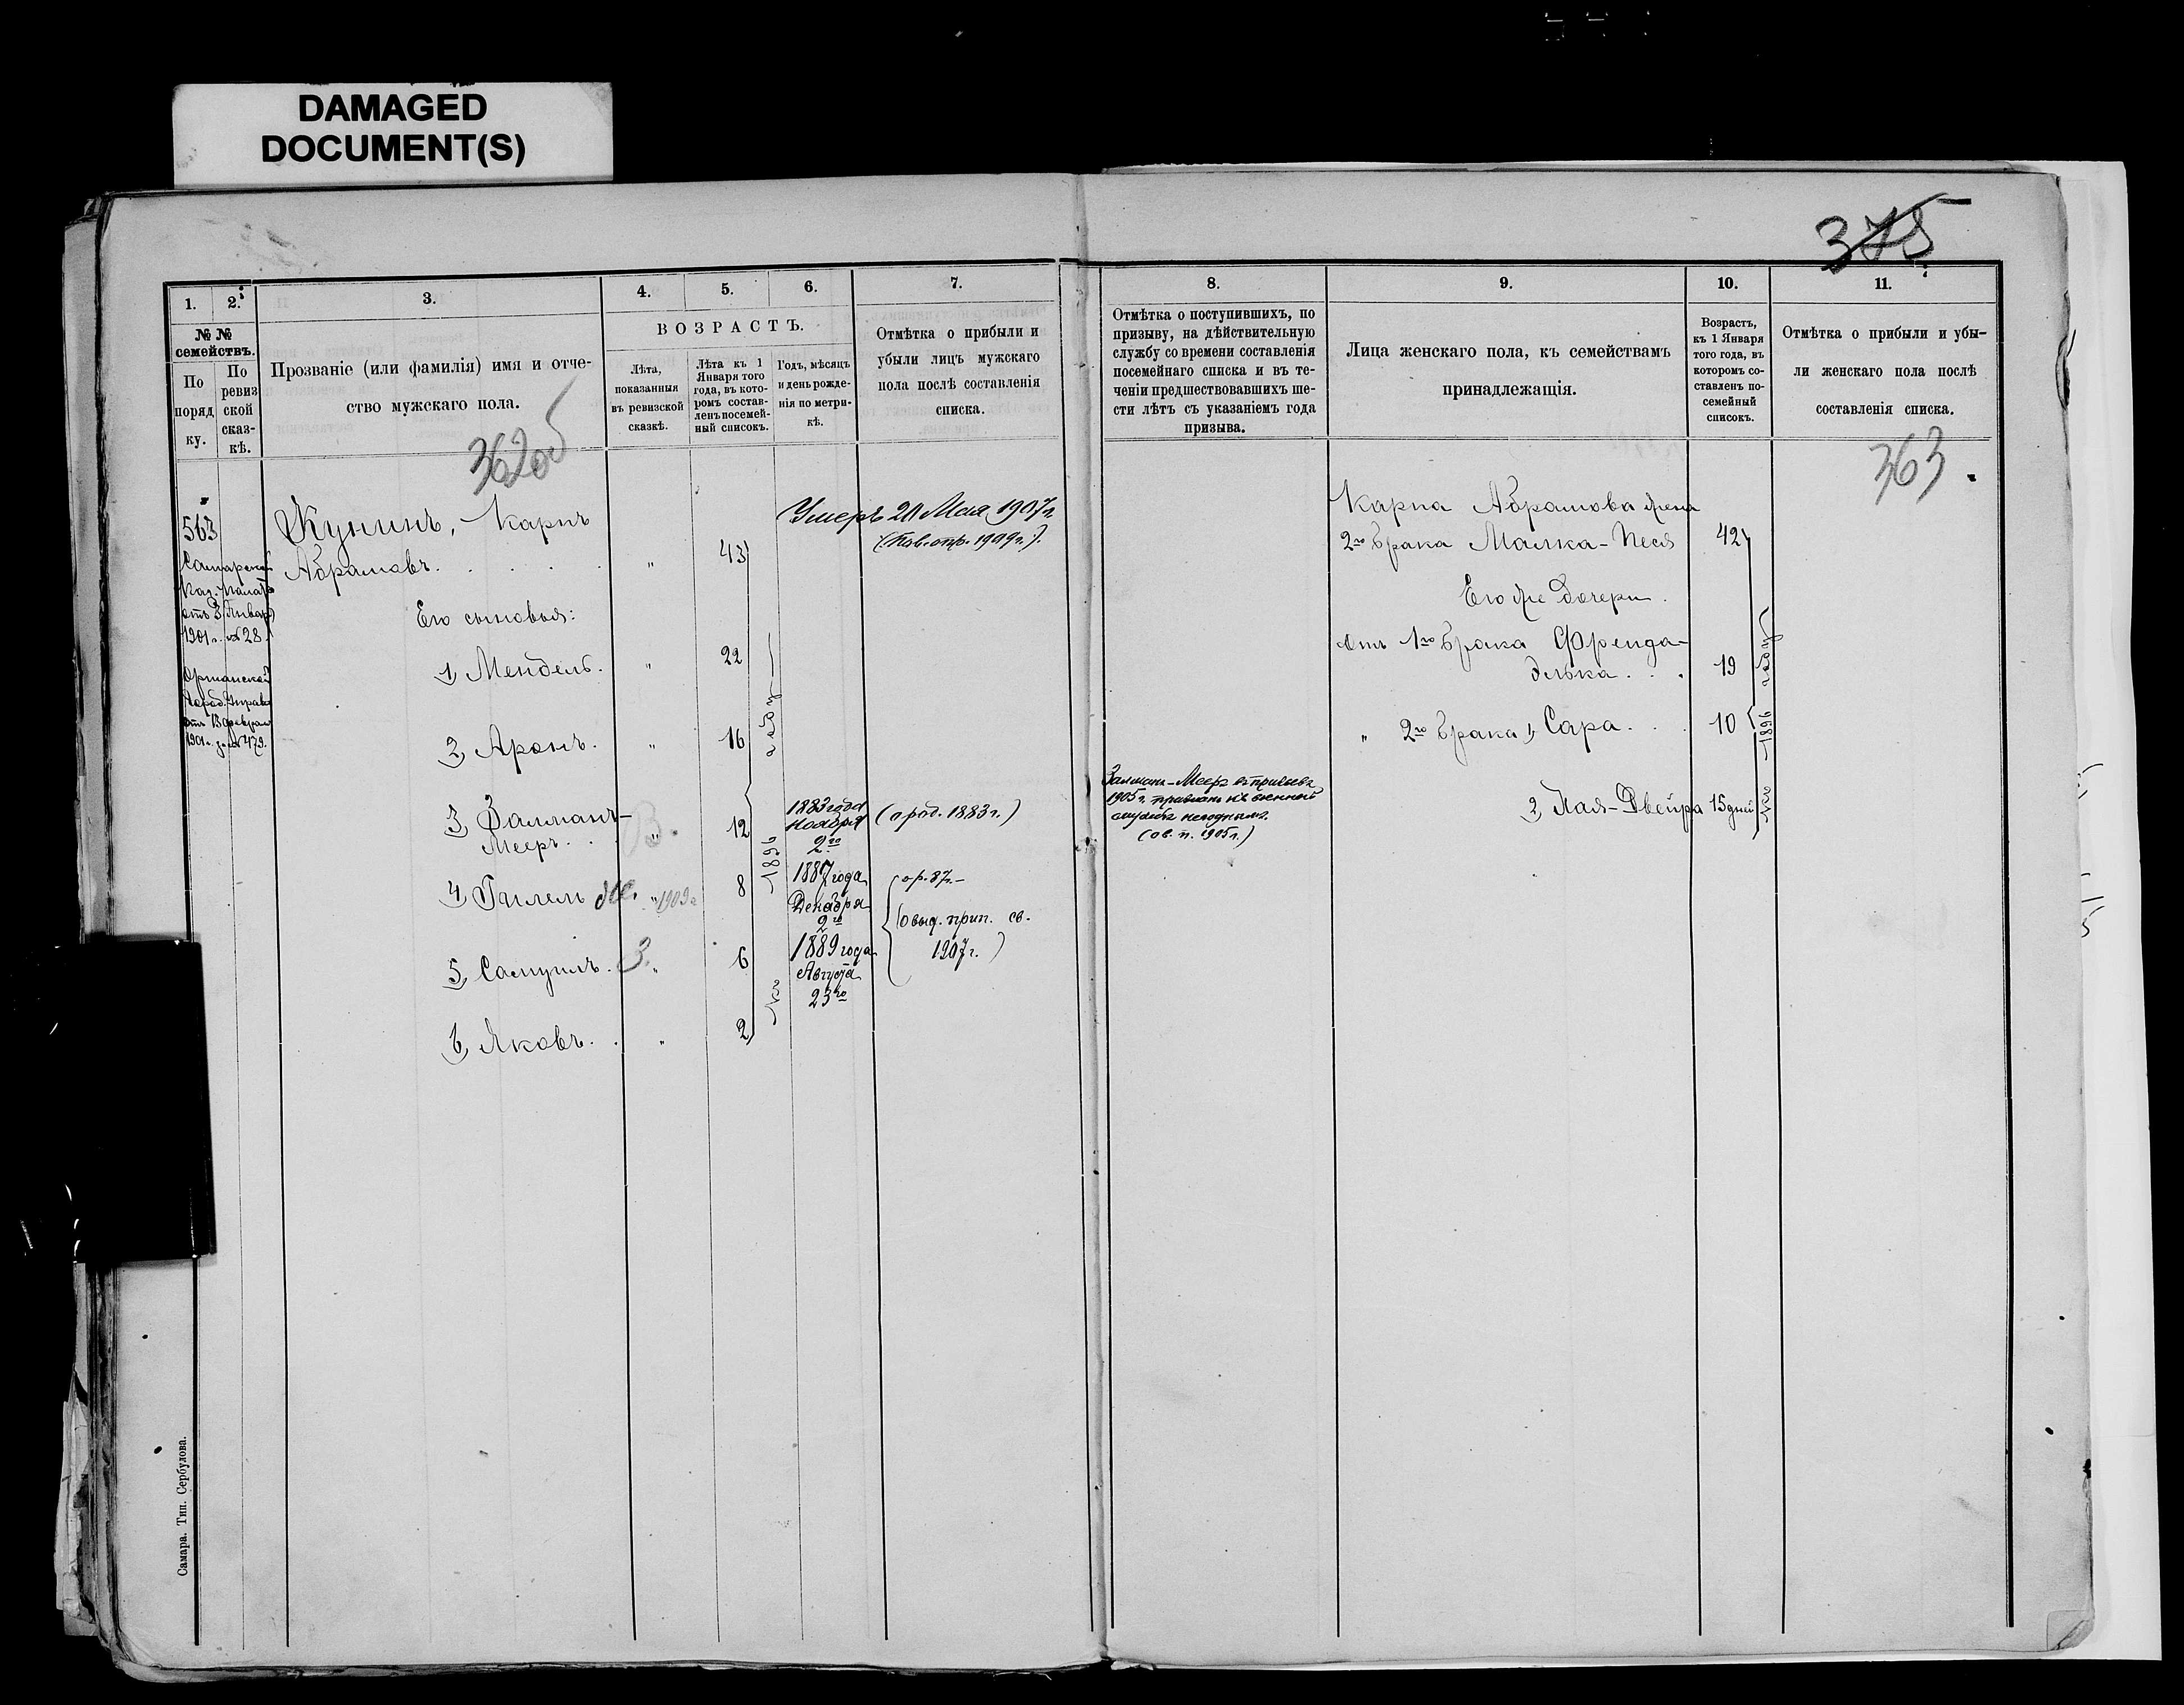 DAMAGED
DOCUMENT(S)
375
1.
2.
3.
4.
5.
6.
7.
№ №
семействъ.
По
поряд
ку.
По
ревиз
ской
сказ-
кѣ.
Прозваніе (или фамилія) имя и отче-
ство мужскаго пола.
ВОЗРАСТЪ.
Лѣта,
показанныя
въ ревизской
сказкѣ.
Лѣта къ 1
Января того
года, въ кото-
ромъ состав-
ленъ посемей-
ный списокъ.
Годъ, мѣсяцъ
и день рожде-
нія по метри-
кѣ.
Отмѣтка о прибыли и
убыли лицъ мужскаго
пола послѣ составленія
списка.
362об
563
Самарской
Каз. Палаты
отъ 3 Января
1901 г. № 28.
Оршанской
Город. Управы
отъ 13 Февраля
1901 г. за № 479.
Кунинъ, Карпъ
Абрамовъ. . . . . " 43
Умеръ 20 Мая 1907 г.
Его сыновья:
1, Мендель. " 22
2, Аронъ. " 16
3, Залманъ-
Мееръ. . . " 12
1883 года
Ноября
2го
(о род. 1883 г.)
4, Гилель " 1909 г. 8
1887 года
Декабря
2го
5, Самуилъ. " 6
1889 года
Августа
23го
ор. 87 г.
(о выд. прип. св.
1907 г.)
6, Яковъ. . " 2
Къ 1896 году
Самара. Тип. Сербулова.
8.
9.
10.
11.
Отмѣтка о поступившихъ, по
призыву, на дѣйствительную
службу со времени составленія
посемейнаго списка и въ те-
ченіи предшествовавшихъ ше-
сти лѣтъ съ указаніемъ года
призыва.
Лица женскаго пола, къ семействамъ
принадлежащія.
Возрастъ,
къ 1 Января
того года, въ
которомъ со-
ставленъ по-
семейный
списокъ.
Отмѣтка о прибыли и убы-
ли женскаго пола послѣ
составленія списка.
363
Карпа Абрамова жена
2го брака Малка-Песя 42
Его же дочери.
отъ 1го брака Френда-
Элька . . . 19
" 2го брака 1, Сара. . . 10
2, Хая-Двейра 15 дней
Къ 1896 году
Залманъ-Мееръ въ призывъ
1905 г. признанъ къ военной
службѣ негоднымъ.
(ов. п. 1905 г.)